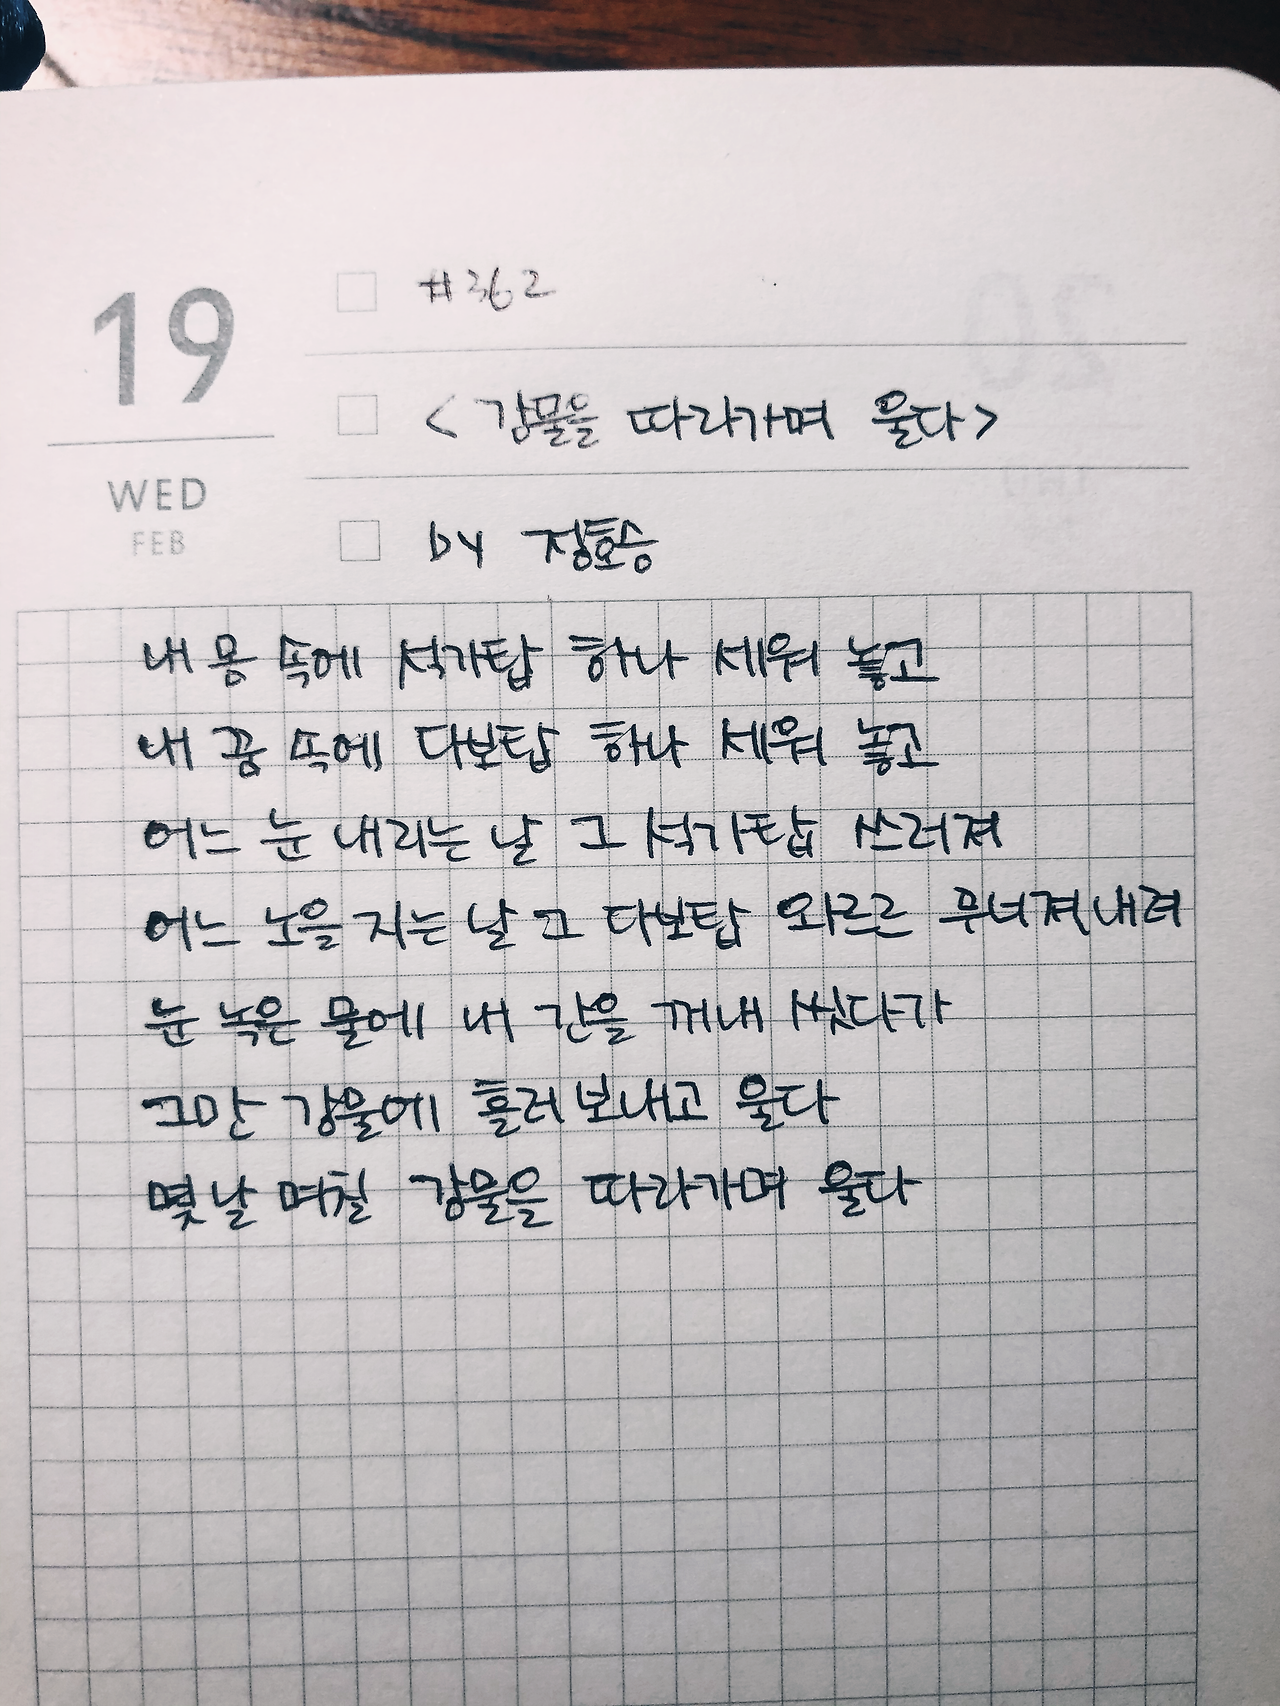 19
WED
FEB
#362
<강물을 따라가며 울다>
by 정호승
내 몸 속에 석가탑 하나 세워 놓고
내 꿈 속에 다보탑 하나 세워 놓고
어느 눈 내리는 날 그 석가탑 쓰러져
어느 노을 지는 날 그 다보탑 와르르 무너져내려
눈 녹은 물에 내 간을 꺼내 씻다가
그만 강물에 흘려보내고 울다
몇날 며칠 강물을 따라가며 울다